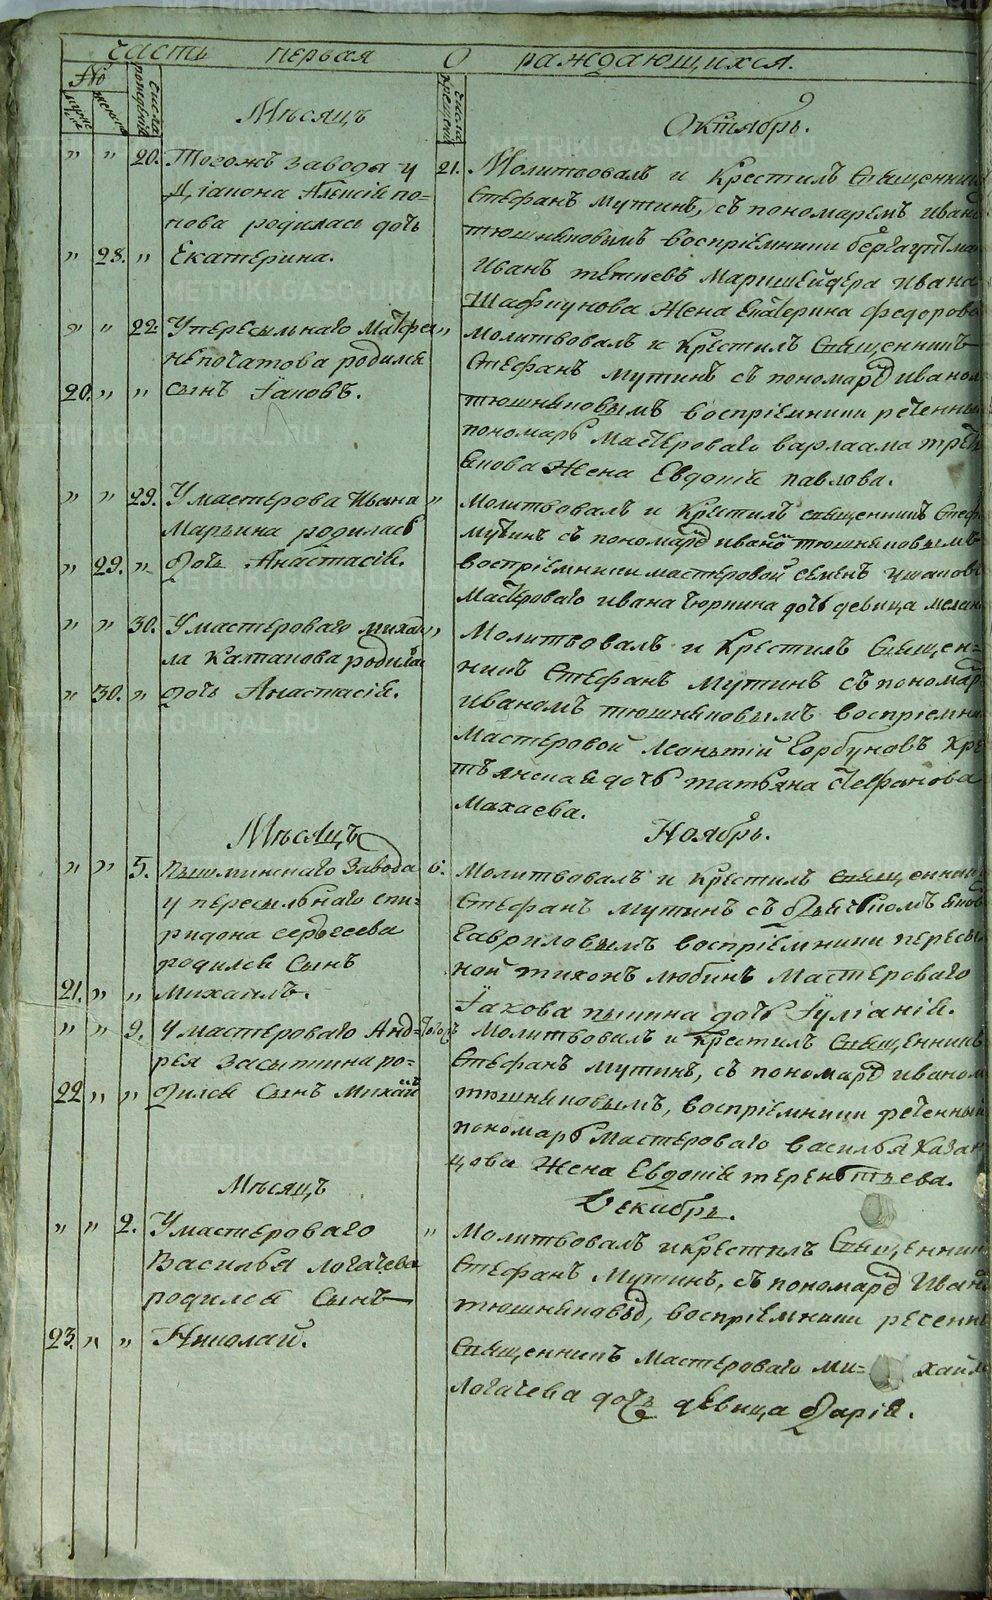 часть первая О раждающихся.
№
мужес женска
числа рождения
числа крещения
Мѣсяцъ
Октябрь.
" " 20. Тогожъ завода у
Діакона Алексія по=
пова родилась дочь
" 28. " Екатерина.
21. Молитвовалъ и крестилъ Священникъ
Стефанъ Мутинъ, съ пономаремъ Иван
тюшняковымъ воспріемники берггауптман
Иванъ тетюевъ Маркшейдера Ивана
Жена Екатерина Федорова
" " 22. У пересыльнаго Матфея
непочатова родился
20. " " сынъ Іаковъ.
" Молитвовалъ и крестилъ Священникъ
Стефанъ Мутинъ съ пономарем Иваном
тюшняковымъ воспріемники реченный
пономарь Мастероваго варлаама трет
якова Жена Евдокія павлова.
" " 29. У мастерова Ивана
Марьина родилась
" 29. " Дочь Анастасія.
" Молитвовалъ и крестилъ священникъ Стеф
Мутинъ съ пономарем Иваном тюшняковымъ
воспріемники мастеровой семенъ ушаковъ
Мастероваго Ивана тюрнина дочь девица мелан
" " 30. У мастероваго миха
ла Катанова родилас
" 30. " дочь Анастасія.
" Молитвовалъ и Крестилъ Священ=
никъ Стефанъ Мутинъ съ пономар
Иваномъ тюшняковымъ воспріемни
Мастеровой Леонтій Горбуновъ Кре
тьянская дочь татьяна Стефанова
Махаева.
Мѣсяцъ
Ноябрь.
" " 5. пышминскаго завода
у пересыльнаго спи=
ридона сергѣева
родился Сынъ
21. " " Михаилъ.
6. Молитвовалъ и крестилъ Священник
Стефанъ Мутинъ съ Дьячкомъ Яков
Гавриловымъ воспріемники пересы
ной тихонъ любинъ Мастероваго
Іакова пынина дочь Іуліанія.
" " 9. у мастероваго Анд=
рея Засыпкина ро=
22 " " дился Сынъ Михаилъ
Тогож Молитвовалъ и крестилъ Священникъ
Стефанъ Мутинъ, съ пономарем Иваном
тюшняковымъ, воспріемники реченный
пономарь Мастероваго Василья Казан
цова Жена Евдокія терентьева.
Мѣсяцъ
Декабрь.
" " 2. У мастероваго
Василья логачева
родился Сынъ
23. " " Николай.
" Молитвовалъ и крестилъ Священник
Стефанъ Мутинъ, съ пономарем Иван
тюшняковым, воспріемники речен
Священникъ Мастероваго Ми= хаил
Логачева дочь девица Дарія.
METRIKI.GASO-URAL.RU